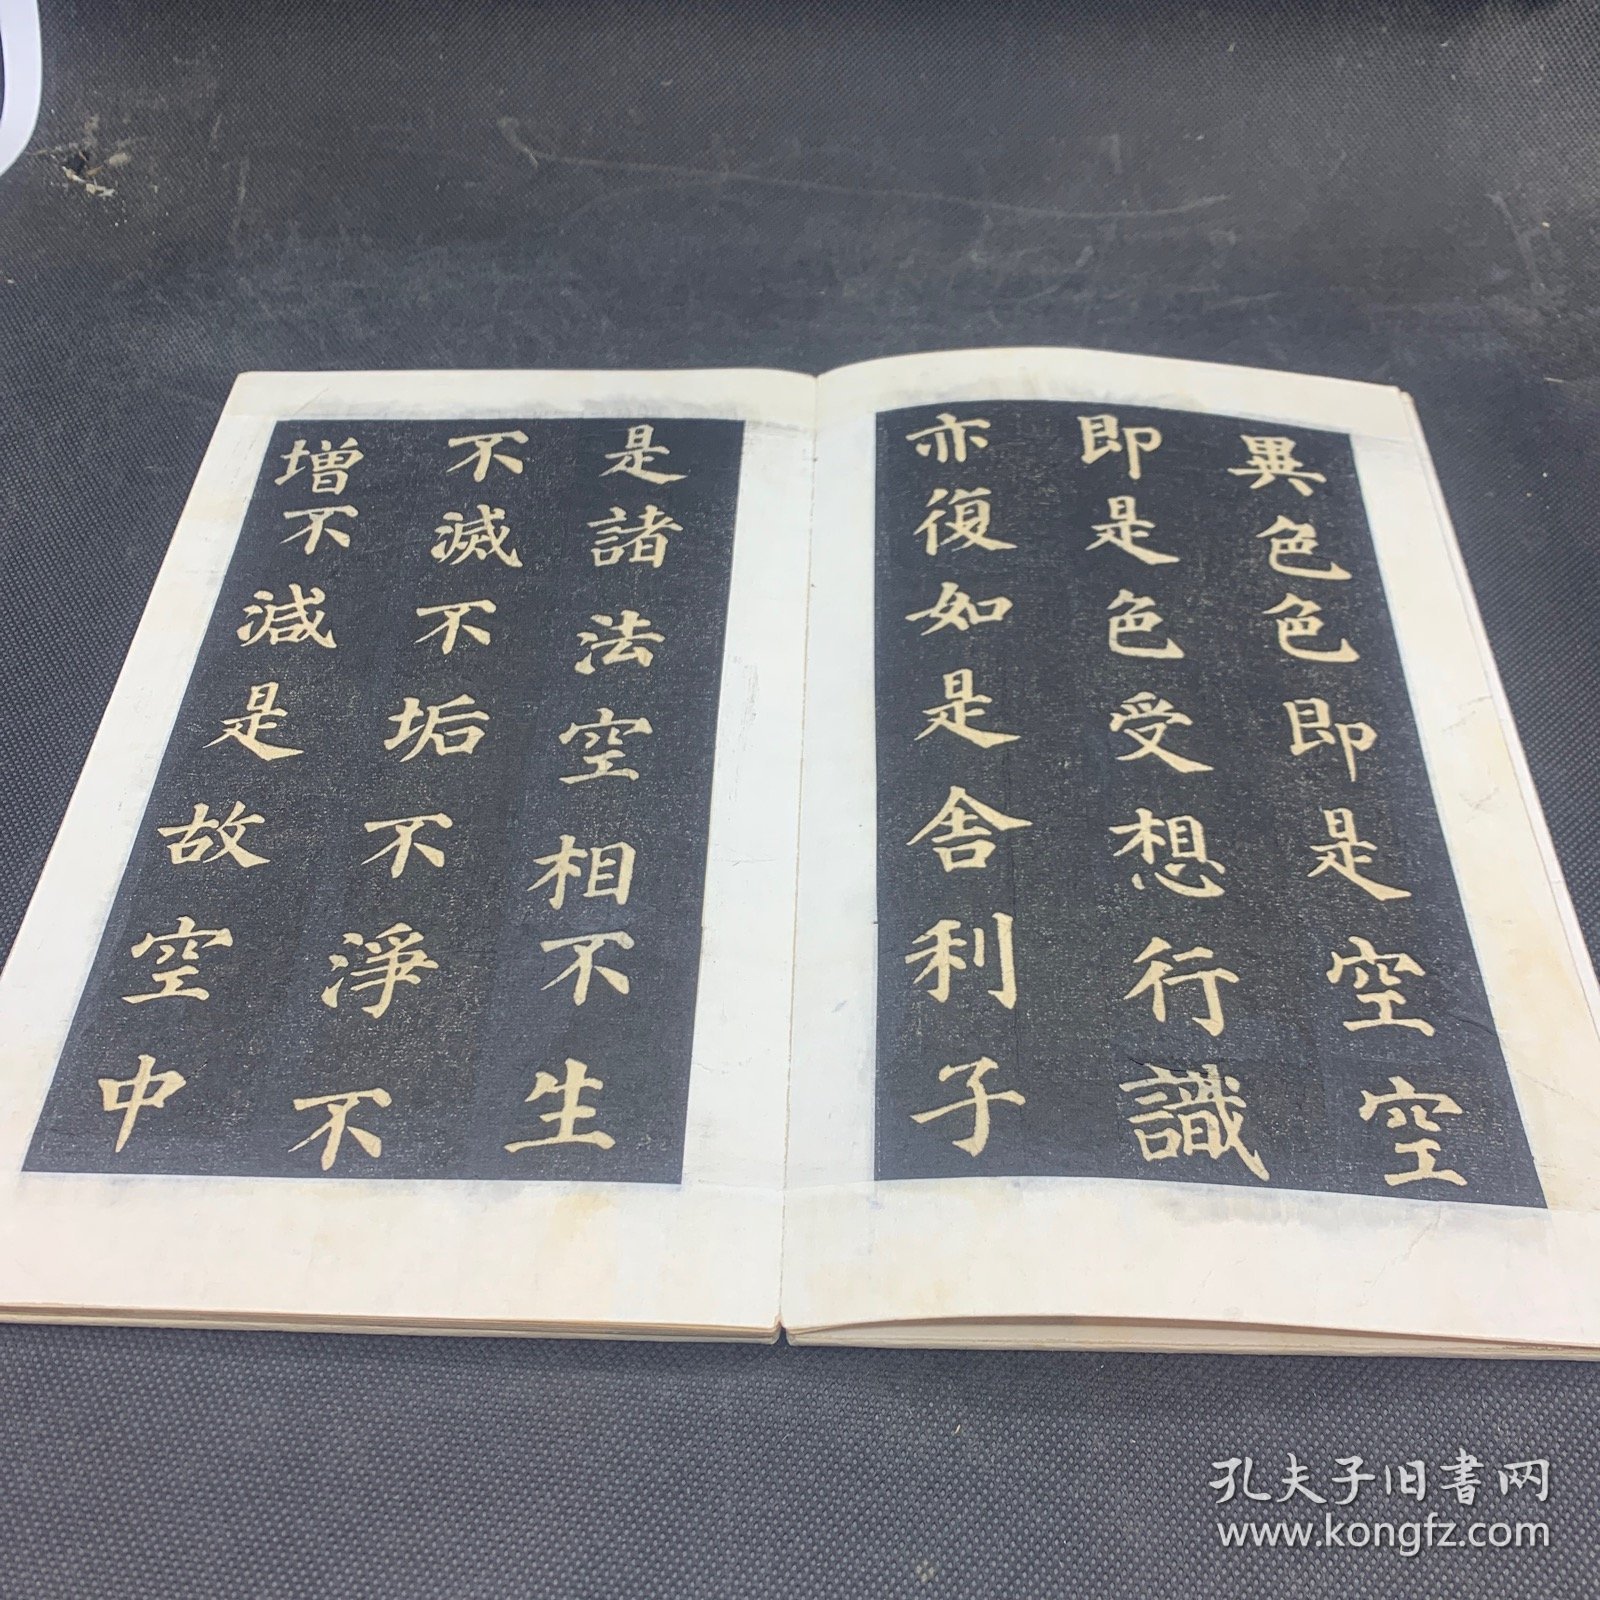 異色色即是空空
即是色受想行識
亦復如是舍利子
是諸法空相不生
不滅不垢不淨不
增不減是故空中
孔夫子旧书网
www.kongfz.com